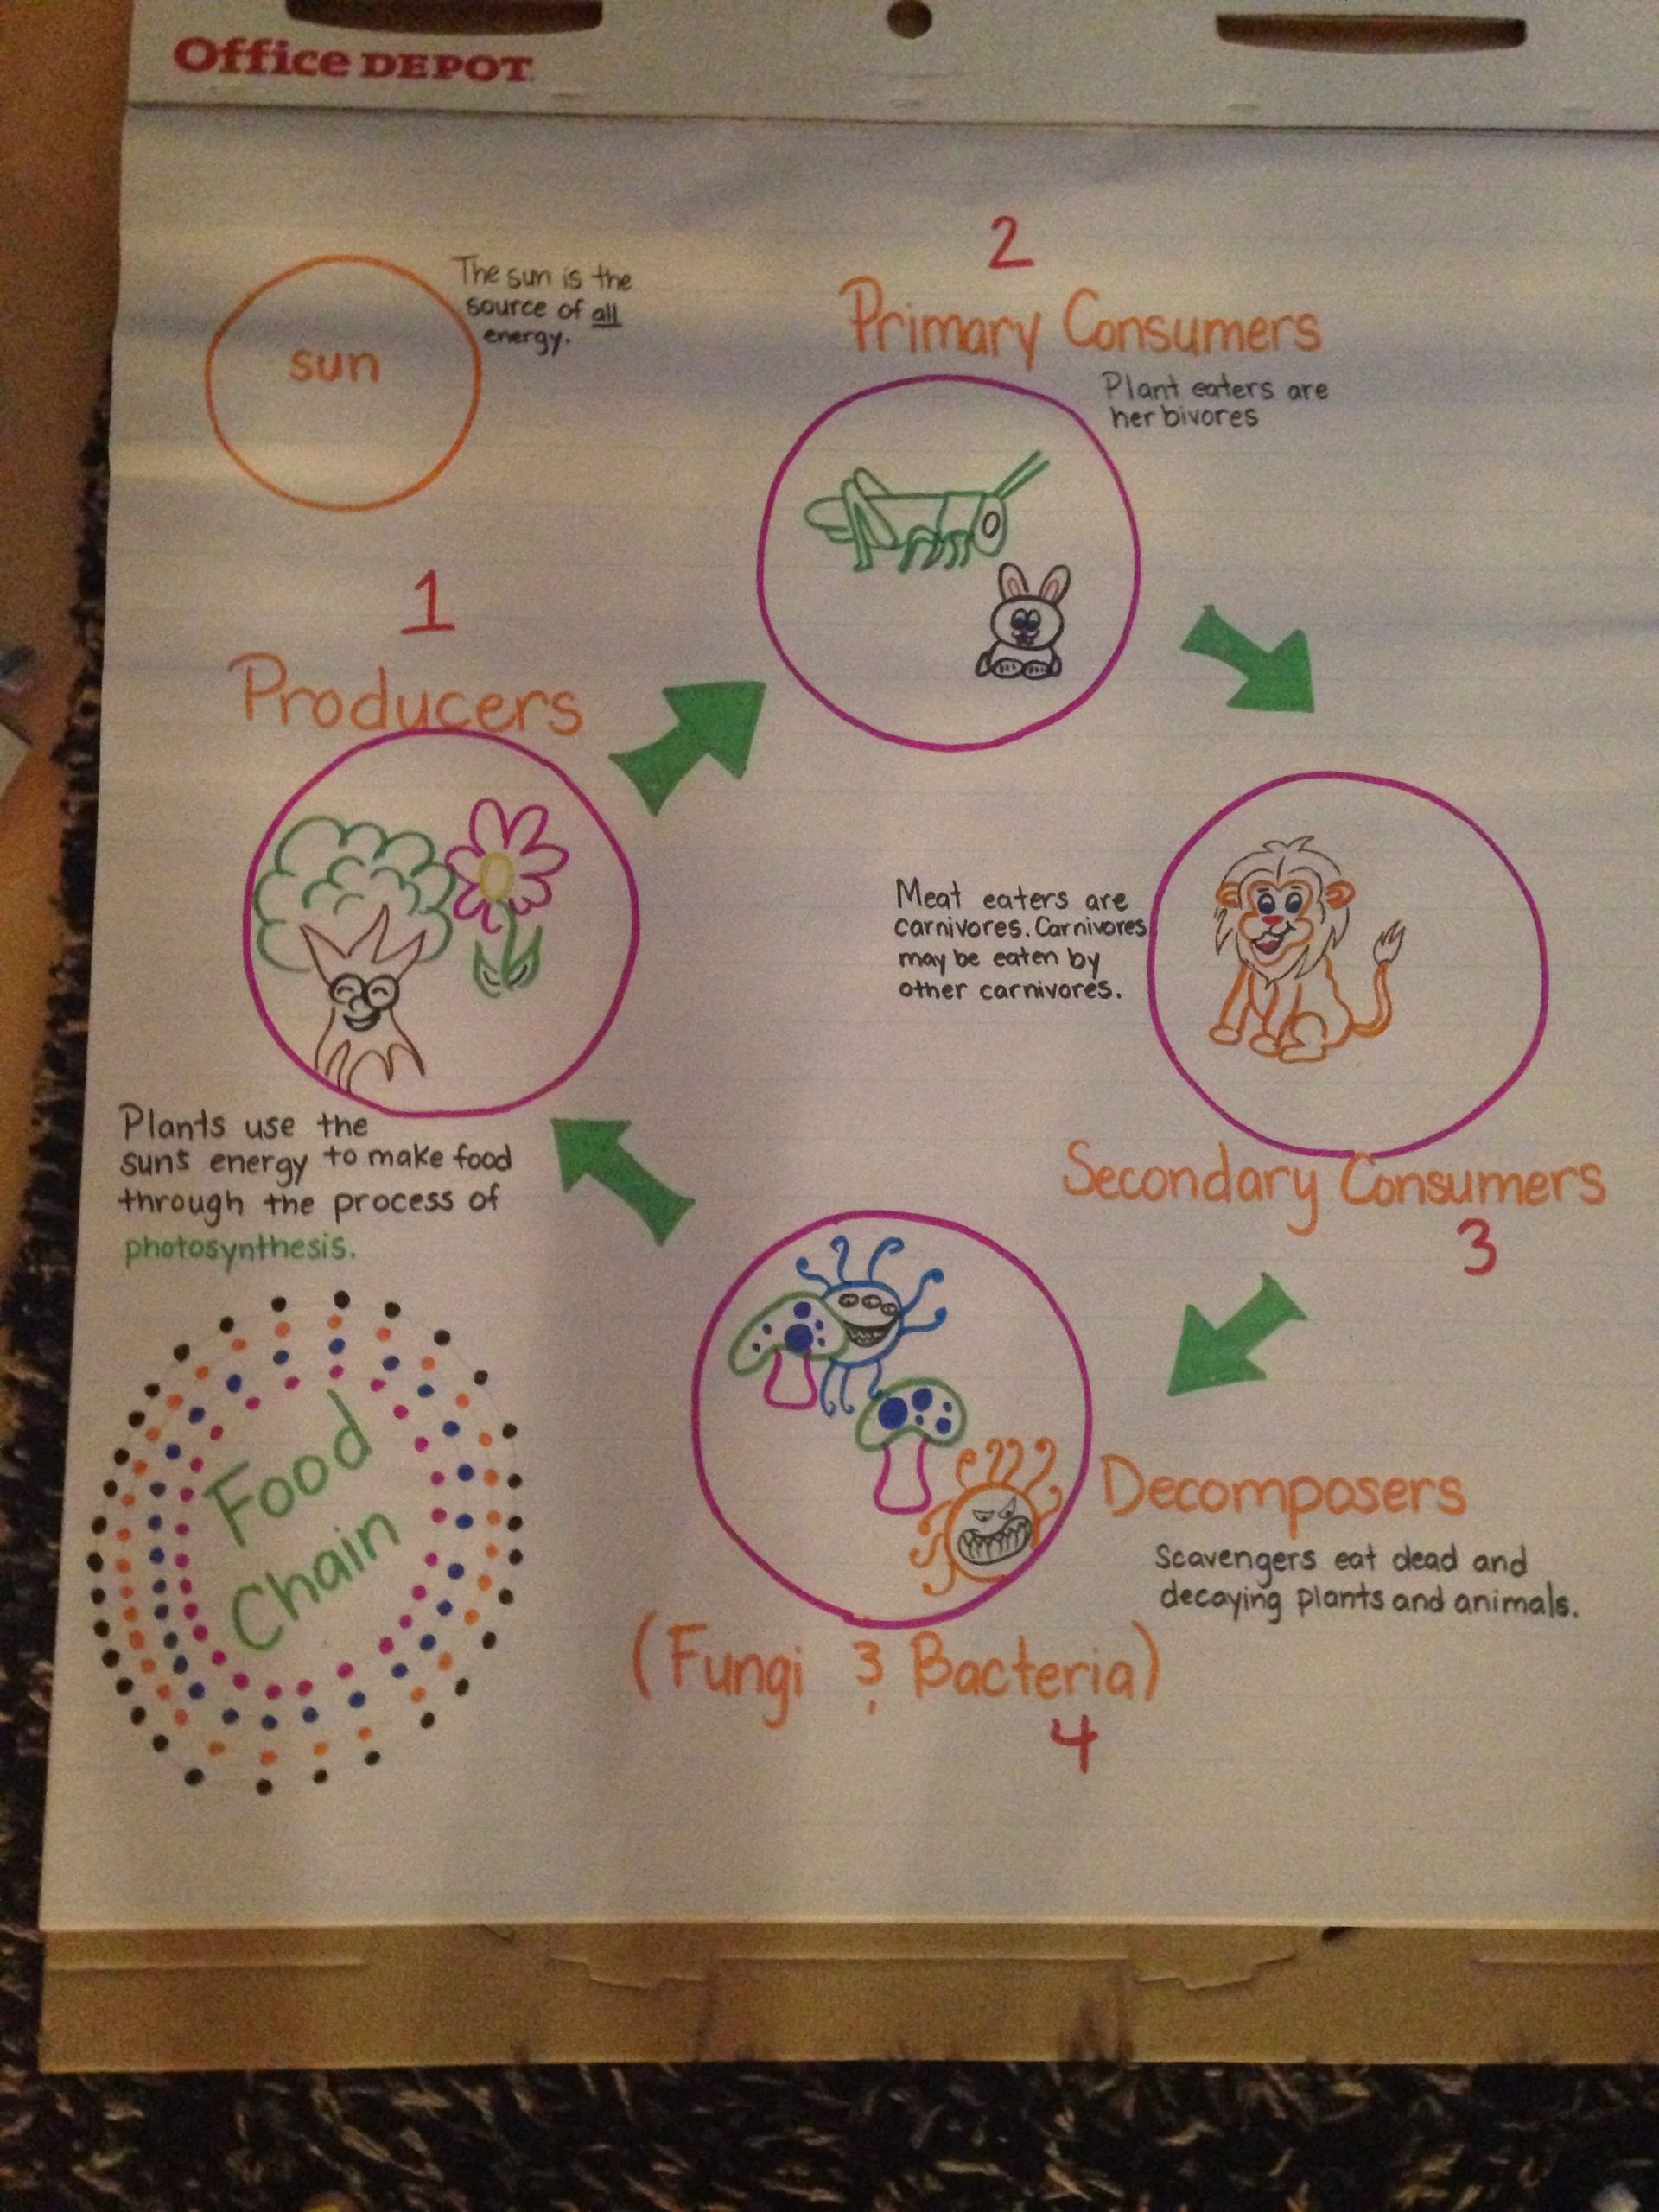 Office DEPOT
sun
The sun is the
source of all
energy.
2
Primary Consumers
Plant eaters are
herbivores
1
Producers
Plants use the
sun's energy to make food
through the process of
photosynthesis.
Meat eaters are
carnivores. Carnivores
may be eaten by
other carnivores.
Secondary Consumers
3
Decomposers
Scavengers eat dead and
decaying plants and animals.
(Fungi & Bacteria)
4
Food
Chain